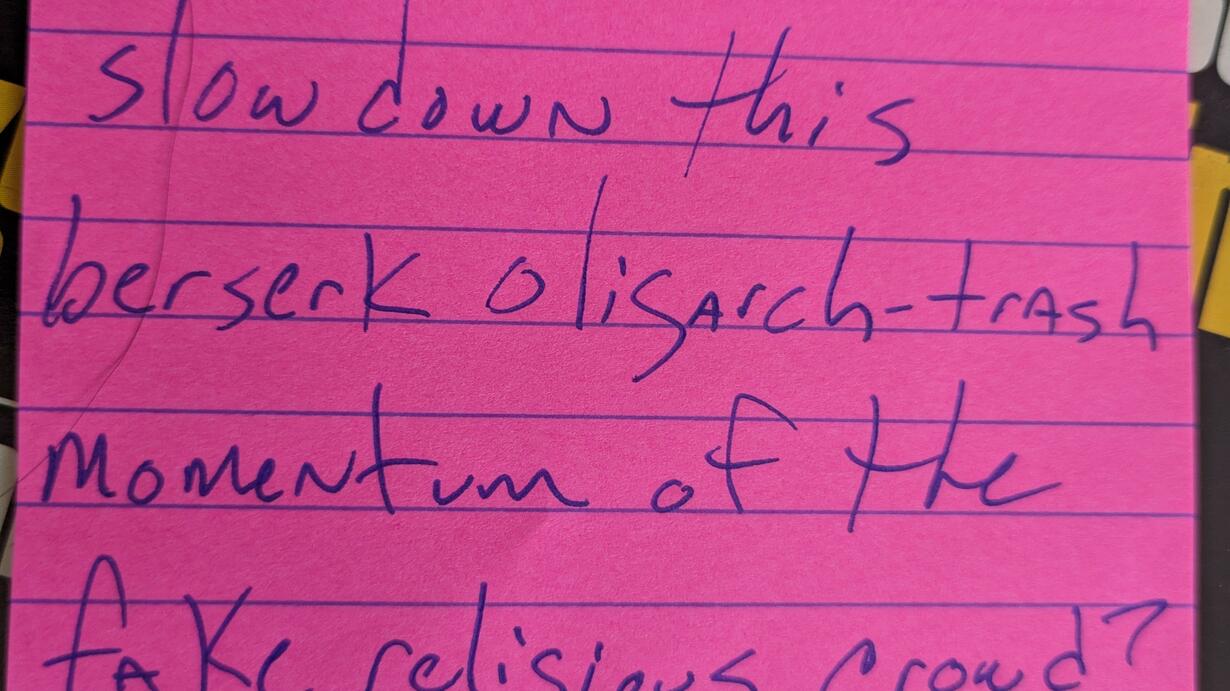 slow down this
berserk oligarch-trash
momentum of the
fake religious crowd?